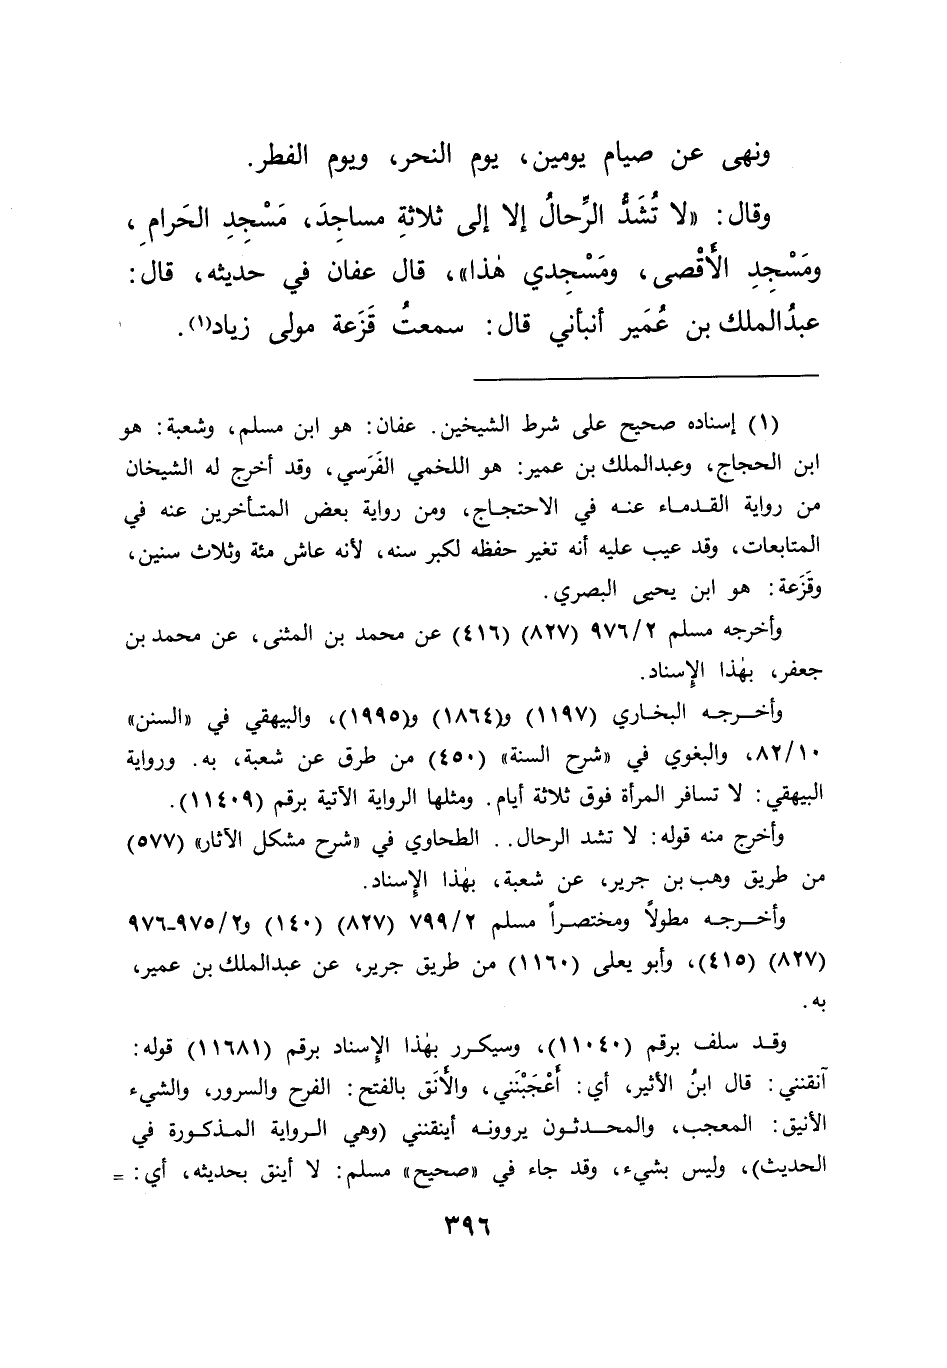 ونهى عن صيام يومين، يوم النحر، ويوم الفطر.
وقال: «لا تُشَدُّ الرِّحالُ إلا إلى ثلاثةِ مساجِدَ، مَسْجِدِ الحَرامِ،
ومَسْجِدِ الأَقْصى، ومَسْجِدي هٰذا»، قال عفان في حديثه، قال:
عبدُالملك بن عُمَير أنبأني قال: سمعتُ قَزَعة مولى زياد(١).
(١) إسناده صحيح على شرط الشيخين. عفان: هو ابن مسلم، وشعبة: هو
ابن الحجاج، وعبدالملك بن عمير: هو اللخمي الفَرَسي، وقد أخرج له الشيخان
من رواية القدماء عنه في الاحتجاج، ومن رواية بعض المتأخرين عنه في
المتابعات، وقد عيب عليه أنه تغير حفظه لكبر سنه، لأنه عاش مئة وثلاث سنين،
وقَزَعة: هو ابن يحيى البصري.
وأخرجه مسلم ٩٧٦/٢ (٨٢٧) (٤١٦) عن محمد بن المثنى، عن محمد بن
جعفر، بهٰذا الإسناد.
وأخرجه البخاري (١١٩٧) و(١٨٦٤) و(١٩٩٥)، والبيهقي في «السنن»
٨٢/١٠، والبغوي في «شرح السنة» (٤٥٠) من طرق عن شعبة، به. ورواية
البيهقي: لا تسافر المرأة فوق ثلاثة أيام. ومثلها الرواية الآتية برقم (١١٤٠٩).
وأخرج منه قوله: لا تشد الرحال.. الطحاوي في «شرح مشكل الآثار» (٥٧٧)
من طريق وهب بن جرير، عن شعبة، بهٰذا الإسناد.
وأخرجه مطولاً ومختصراً مسلم ٧٩٩/٢ (٨٢٧) (١٤٠) و٩٧٥/٢-٩٧٦
(٨٢٧) (٤١٥)، وأبو يعلى (١١٦٠) من طريق جرير، عن عبدالملك بن عمير،
به.
وقد سلف برقم (١١٠٤٠)، وسيكرر بهٰذا الإسناد برقم (١١٦٨١) قوله:
آنقنني: قال ابنُ الأثير، أي: أَعْجَبْنَني، والأَنَق بالفتح: الفرح والسرور، والشيء
الأنيق: المعجب، والمحدثون يروونه أينقنني (وهي الرواية المذكورة في
الحديث)، وليس بشيء، وقد جاء في «صحيح» مسلم: لا أينق بحديثه، أي: =
٣٩٦